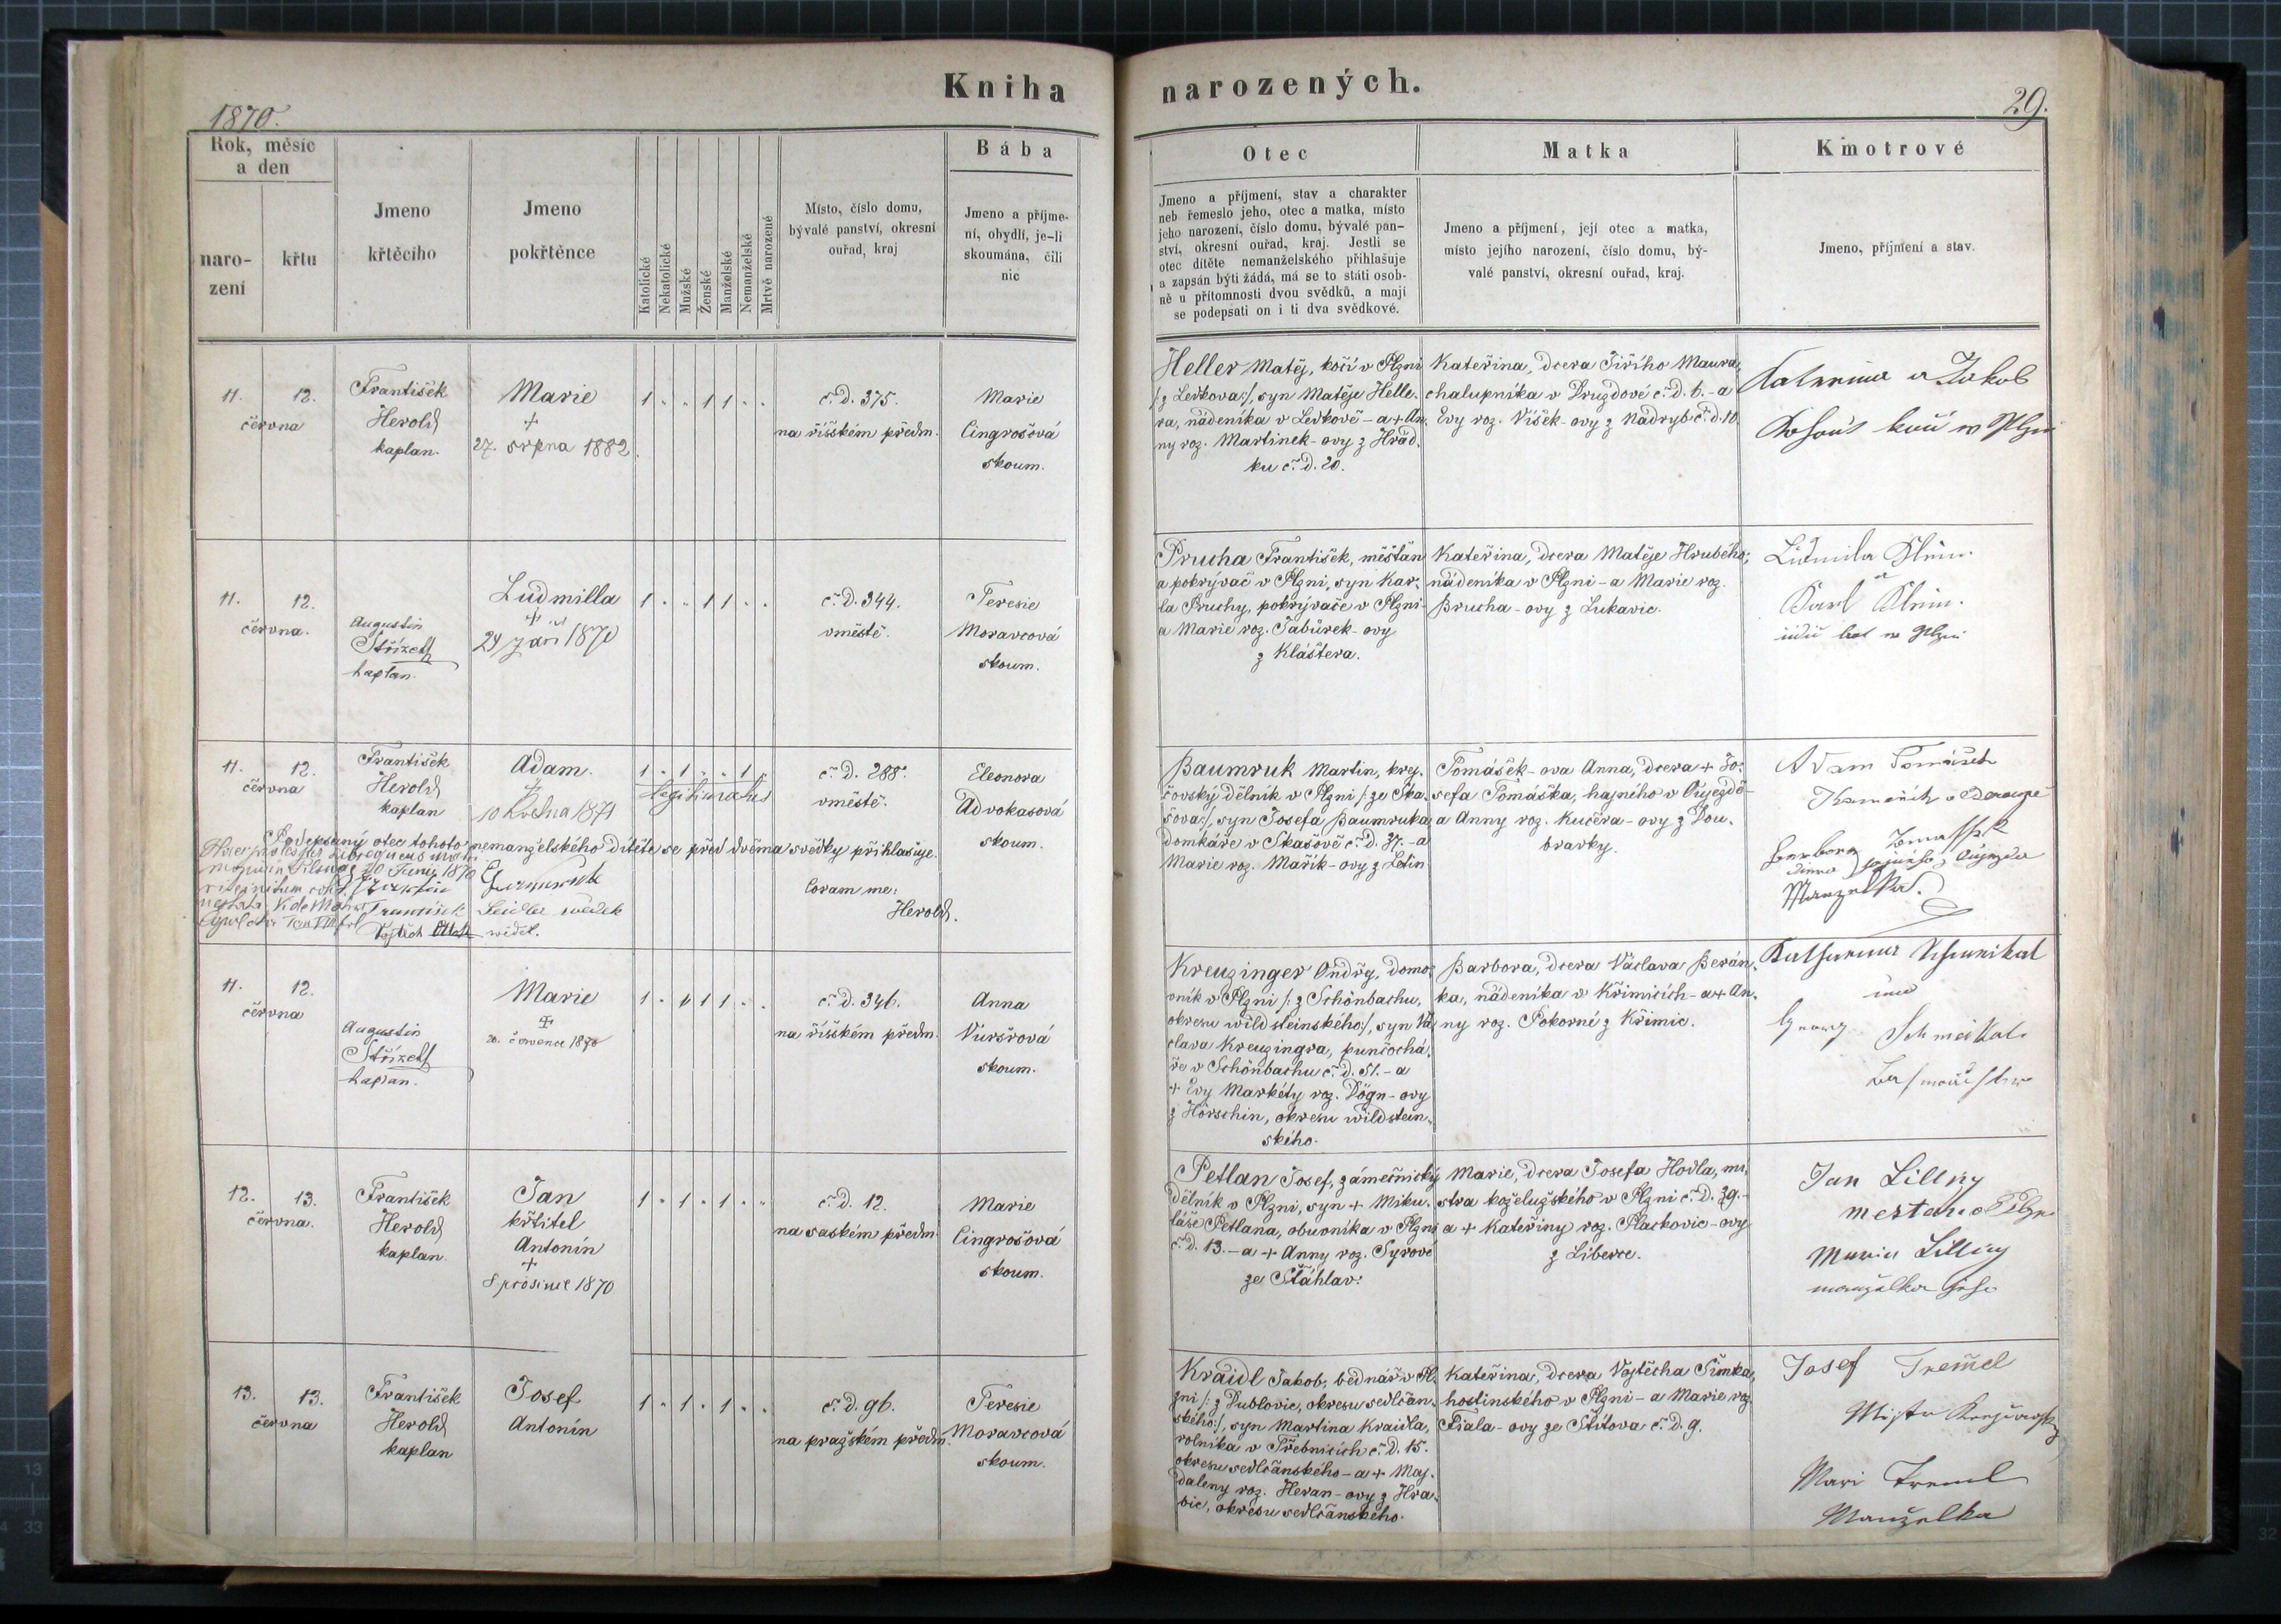 Kniha
narozených.
1870.
29.
Rok, měsíc
a den
naro-
zení
křtu
Jmeno
křtěcího
Jmeno
pokřtěnce
Katolické
Nekatolické
Mužské
Ženské
Manželské
Nemanželské
Mrtvě narozené
Místo, číslo domu,
bývalé panství, okresní
ouřad, kraj
Bába
Jmeno a příjme-
ní, obydlí, je-li
skoumána, čili
nic
Otec
Jmeno a příjmení, stav a charakter
neb řemeslo jeho, otec a matka, místo
jeho narození, číslo domu, bývalé pan-
ství, okresní ouřad, kraj. Jestli se
otec dítěte nemanželského přihlašuje
a zapsán býti žádá, má se to státi osob-
ně u přítomnosti dvou svědků, a mají
se podepsati on i ti dva svědkové.
Matka
Jmeno a příjmení, její otec a matka,
místo jejího narození, číslo domu, bý-
valé panství, okresní ouřad, kraj.
Kmotrové
Jmeno, příjmení a stav.
11. 12.
června
František
Herold
kaplan.
Marie
+
27. srpna 1882.
1 " " 1 1 " "
č. d. 375.
na říšském předm.
Marie
Cingrošová
skoum.
Heller Matěj, kočí v Plzni
/:z Ledkova:/, syn Matěje Helle-
ra, nádeníka v Ledkově - a + An-
ny roz. Martinek-ovy z Hrád-
ku č. d. 20.
Kateřina, dcera Jiřího Maura,
chalupníka v Druzdové č. d. 6. - a
Evy roz. Víšek-ovy z Nadryb č. d. 10.
Katerina a Jakob
kočí w Plzni
11. 12.
června.
Augustin
Střízek
kaplan.
Ludmilla
+
24 září 1870
1 " " 1 1 " "
č. d. 344.
v městě.
Teresie
Moravcová
skoum.
Prucha František, měšťan
a pokrývač v Plzni, syn Kar-
la Pruchy, pokrývače v Plzni -
a Marie roz. Tabůrek-ovy
z Kláštera.
Kateřina, dcera Matěje Hrubého,
nádeníka v Plzni - a Marie roz.
Prucha-ovy z Lukavic.
Ludmila
a
Karl
11. 12.
června
František
Herold
kaplan
Adam.
+
10 Května 1871
1 " 1 " " 1 "
legitimatus
č. d. 288.
v městě.
Eleonora
Advokasová
skoum.
Podepsaný otec tohoto nemanželského dítěte se před dvěma svědky přihlašuje.
Coram me:
Herold.
František Seidler svědek
Vojtěch svědek.
Baumruk Martin, krej-
čovský dělník v Plzni /:ze Ska-
šova:/, syn Josefa Baumruka,
domkáře v Skašově č. d. 37. - a
Marie roz. Mařík-ovy z Letin
Tomášek-ova Anna, dcera + Jo-
sefa Tomáška, hajného v Oujezdě -
a Anny roz. Kučera-ovy z Dou-
bravky.
Adam Tomášek
Barbora
Manzelka.
11. 12.
června
Augustin
Střízek
kaplan.
Marie
+
20. července 1870
1 " " 1 1 " "
č. d. 346.
na říšském předm.
Anna
Vüršrová
skoum.
Kreuzinger Ondřej, domo-
vník v Plzni /:z Schönbachu,
okresu wildsteinského:/, syn Vá-
clava Kreuzingra, punčochá-
ře v Schönbachu č. d. 51. - a
+ Evy Markéty roz. Dögn-ovy
z Hörschin, okresu wildstein-
ského.
Barbora, dcera Václava Berán-
ka, nádeníka v Křimicích - a + An-
ny roz. Pokorné z Křimic.
Katharina
und
Georg Schmeikal
12. 13.
června.
František
Herold
kaplan.
Jan
křtitel
Antonín
+
8 prosince 1870
1 " 1 " 1 " "
č. d. 12.
na saském předm.
Marie
Cingrošová
skoum.
Petlan Josef, zámečnický
dělník v Plzni, syn + Miku-
láše Petlana, obuvníka v Plzni
č. d. 13. - a + Anny roz. Syrové
ze Šťáhlav.
Marie, dcera Josefa Hodla, mi-
stra koželužského v Plzni č. d. 39. -
a + Kateřiny roz. Plackovic-ovy
z Liberce.
Jan Lillny
mestan v Plzni
Maria Lillny
manželka geho
13. 13.
června
František
Herold
kaplan
Josef
Antonín
1 " 1 " 1 " "
č. d. 96.
na pražském předm.
Teresie
Moravcová
skoum.
Kraidl Jakob, bednář v Pl-
zni /:z Dublovic, okresu sedlčan-
ského:/, syn Martina Kraidla,
rolníka v Třebnicích č. d. 15.
okresu sedlčanského - a + Maj-
daleny roz. Heran-ovy z Hra-
bic, okresu sedlčanského.
Kateřina, dcera Vojtěcha Šimka,
hostinského v Plzni - a Marie roz.
Fiala-ovy ze Štítova č. d. 9.
Josef Treml
Mistr Krejčovský
Mari Treml
Manželka